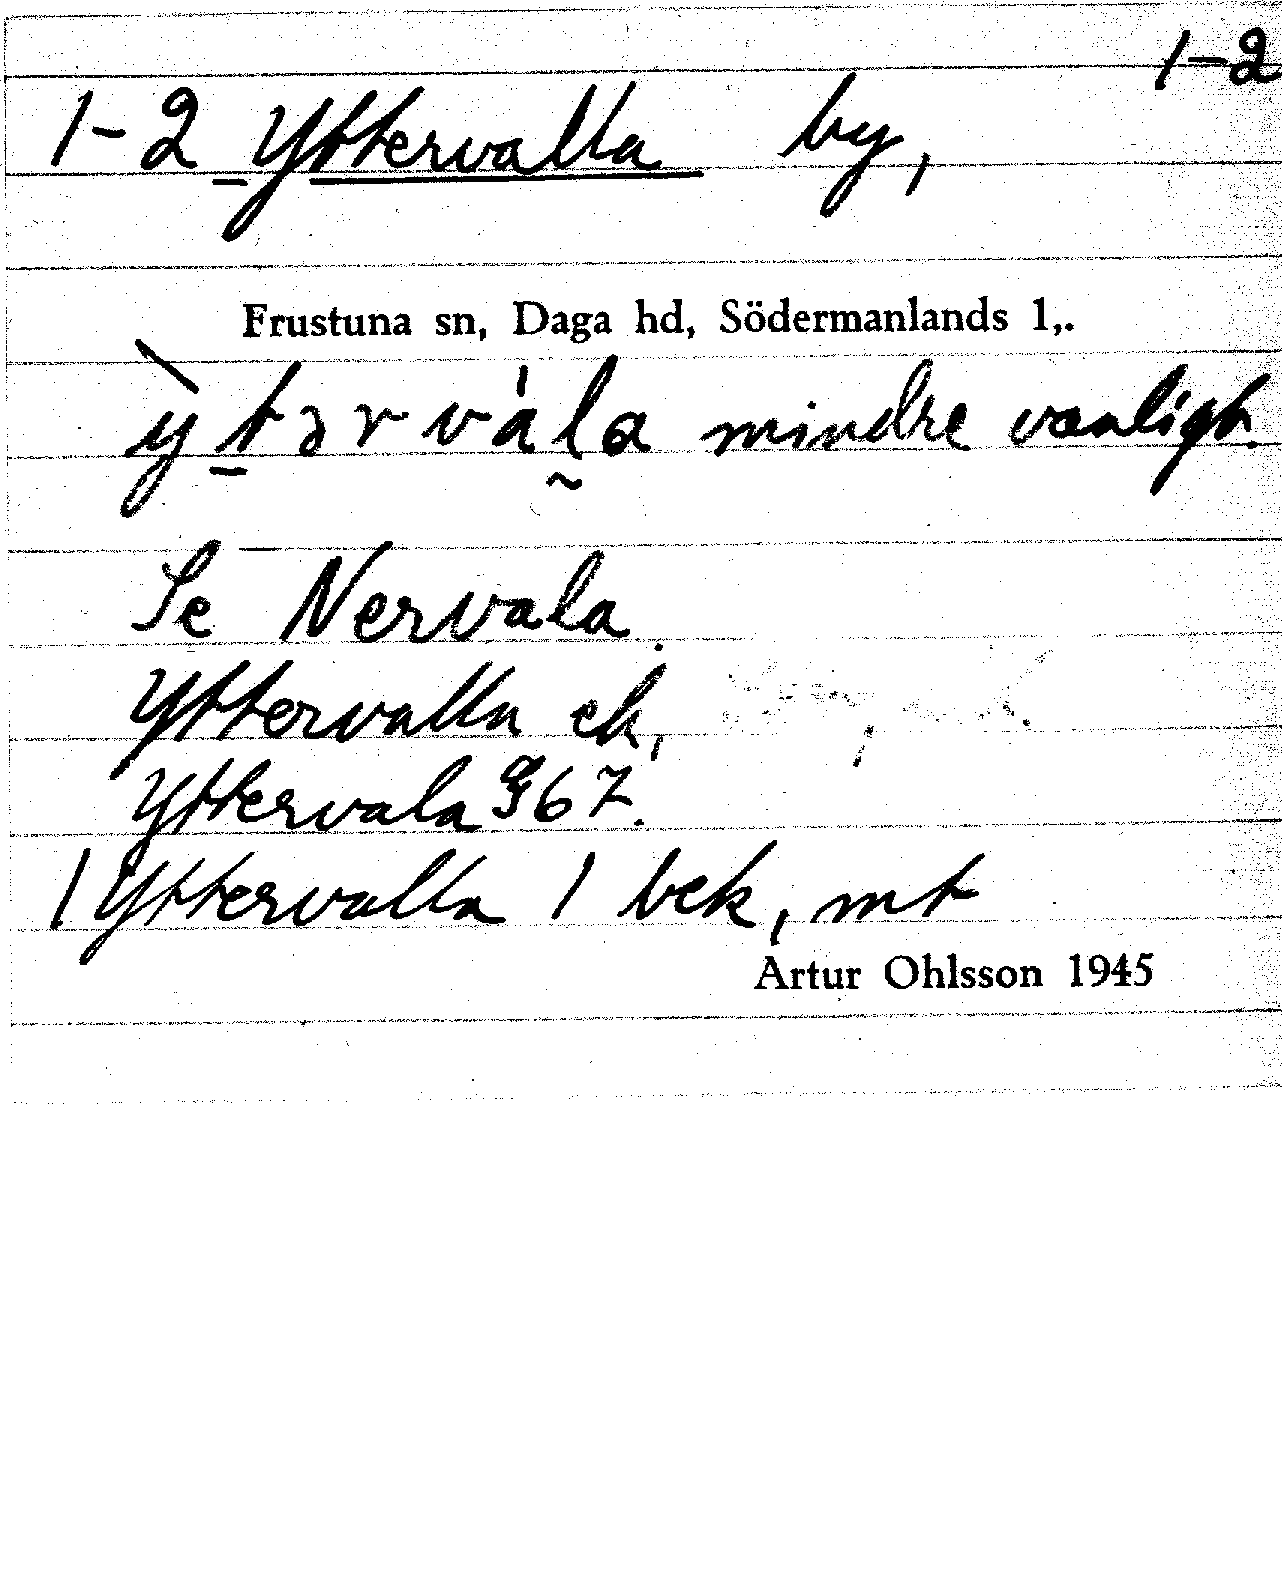 1-2
1-2 Yttervalla by,
Frustuna sn, Daga hd, Södermanlands l,.
ỳtərvála mindre vanligt.
Se Nervala.
Yttervalla ek,
Yttervala G67.
1 Yttervalla 1 bek, mt
Artur Ohlsson 1945